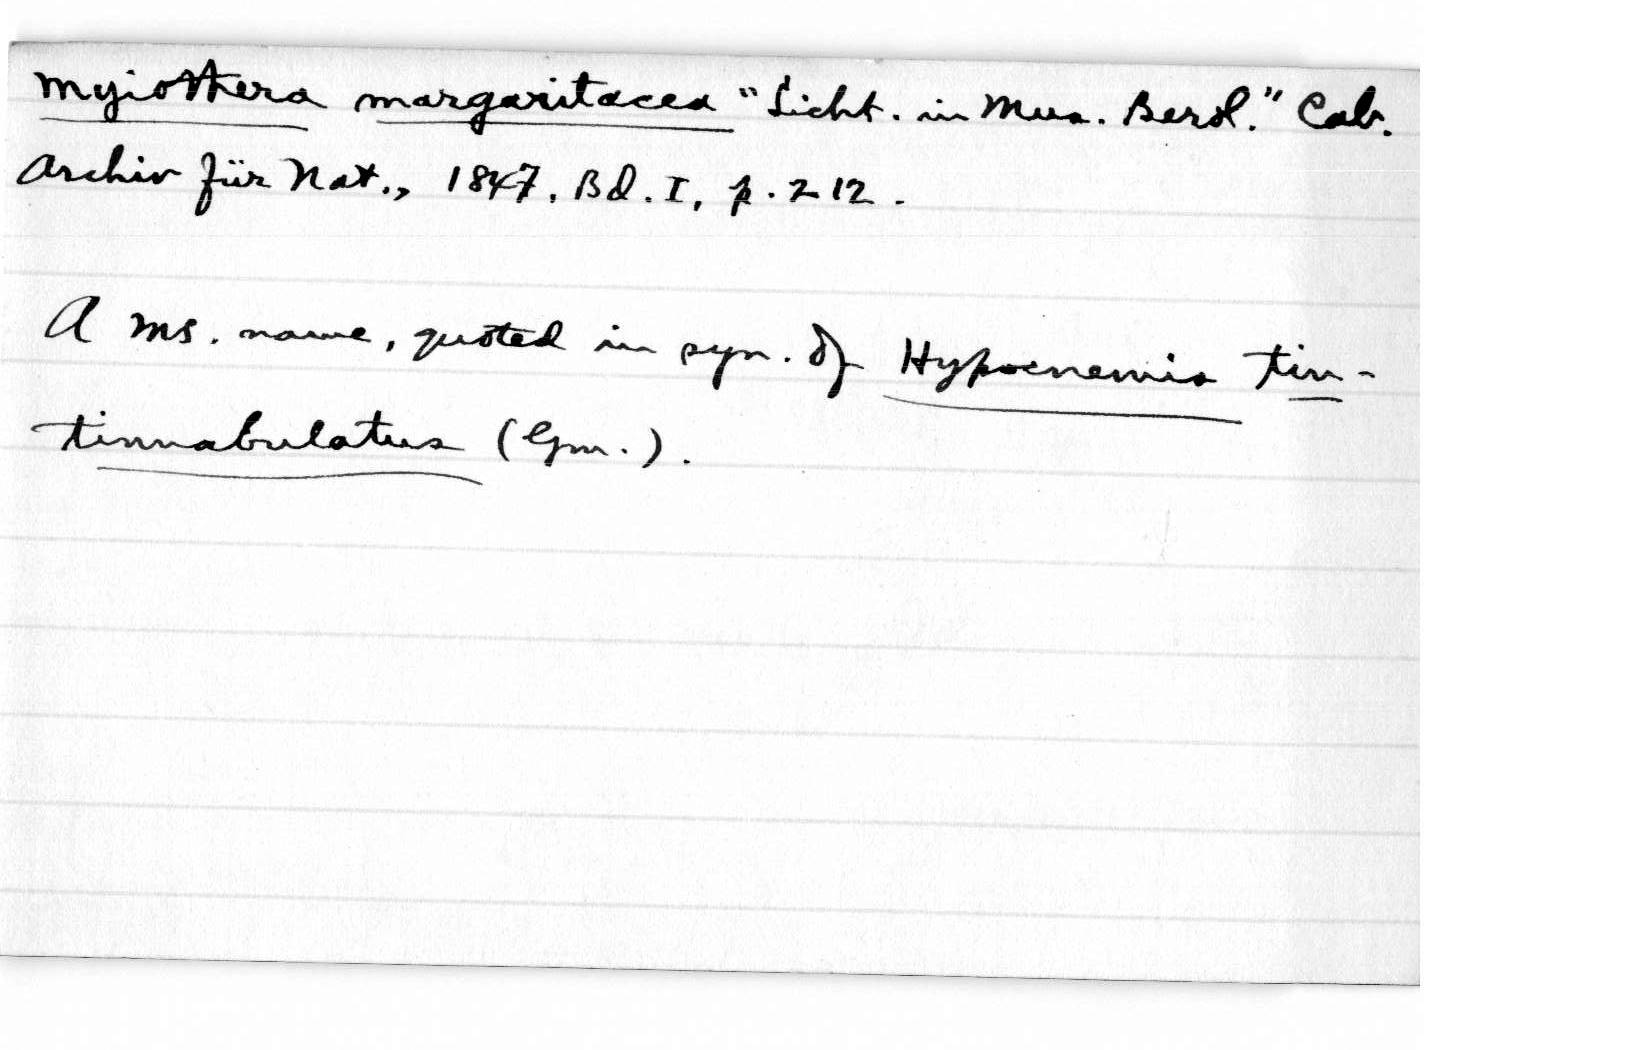 Myiothera margaritacea "Licht. in Mus. Berol." Cab.
Archiv für Nat., 1847, Bd. I, p. 212.
A ms. name, quoted in syn. of Hypocnemis tin-
tinnabulatus (Gm.).